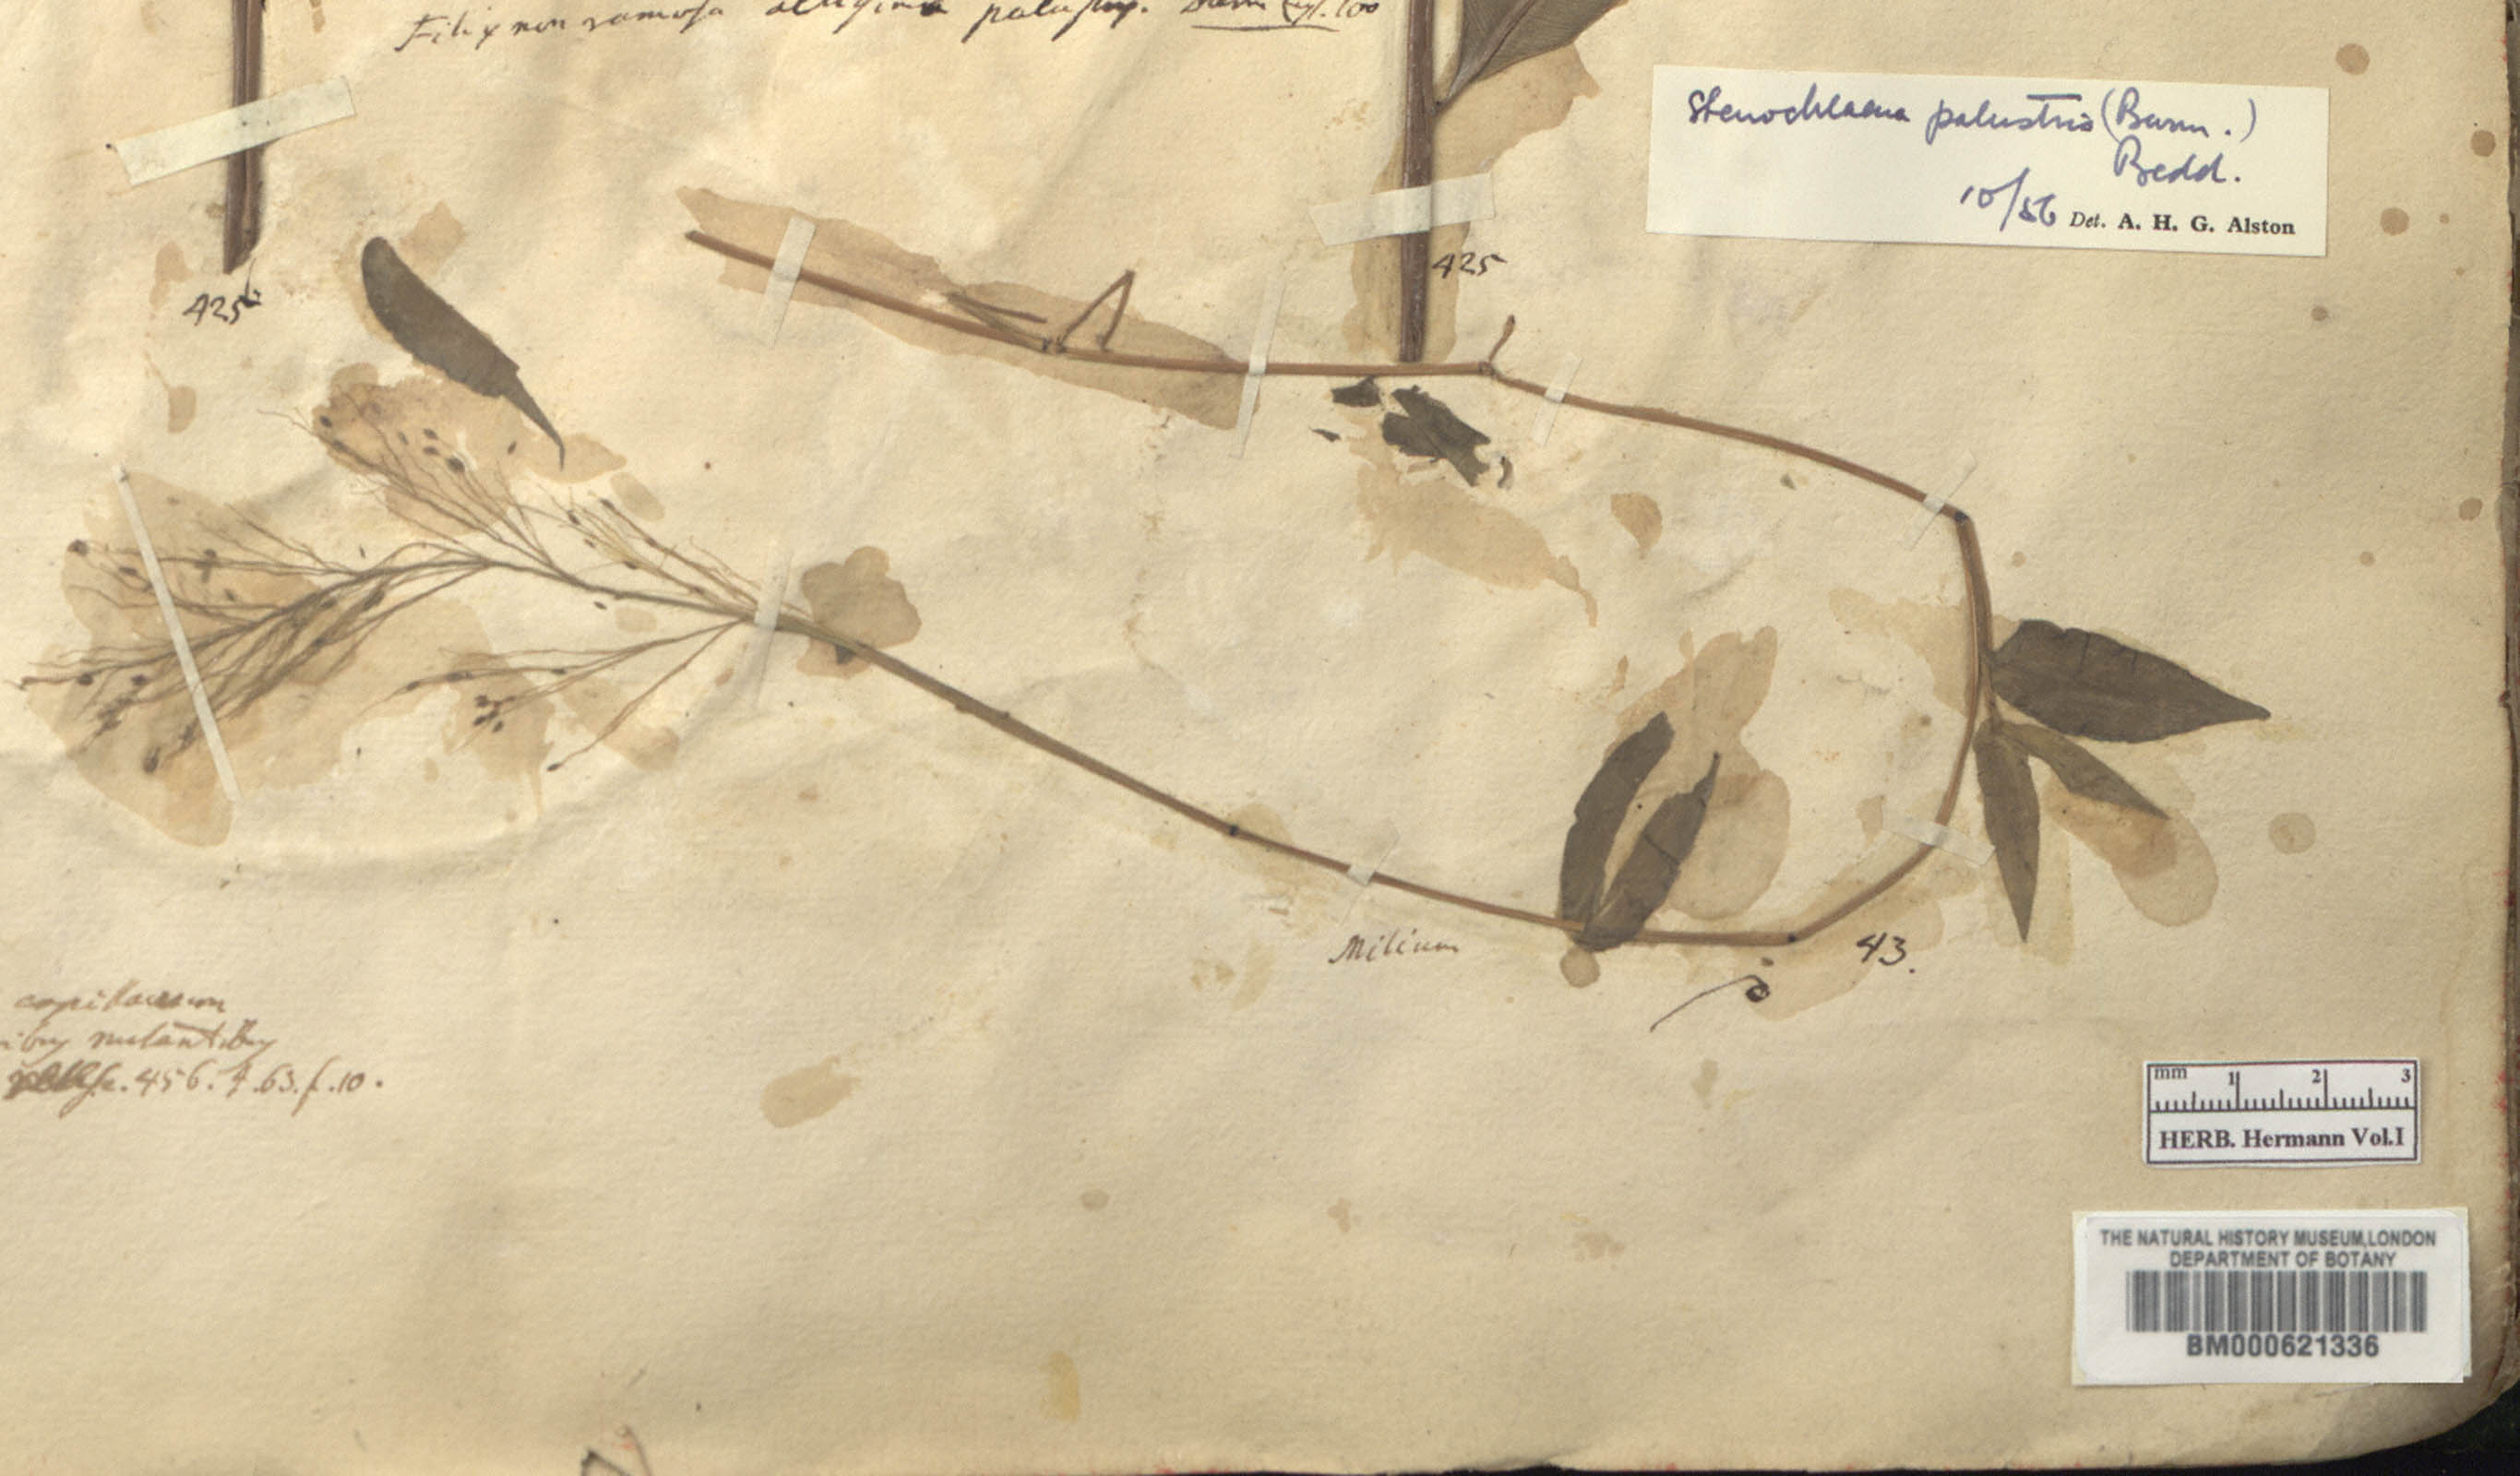 Filix non ramosa palustris. Burm. Zeyl. 100
Stenochlaena palustris (Burm.)
Bedd.
10/56 Det. A. H. G. Alston
425
425
Milium
43.
capillaceum
nutantibus
456. t. 63. f. 10.
mm 1 2 3
HERB. Hermann Vol.I
THE NATURAL HISTORY MUSEUM,LONDON
DEPARTMENT OF BOTANY
BM000621336